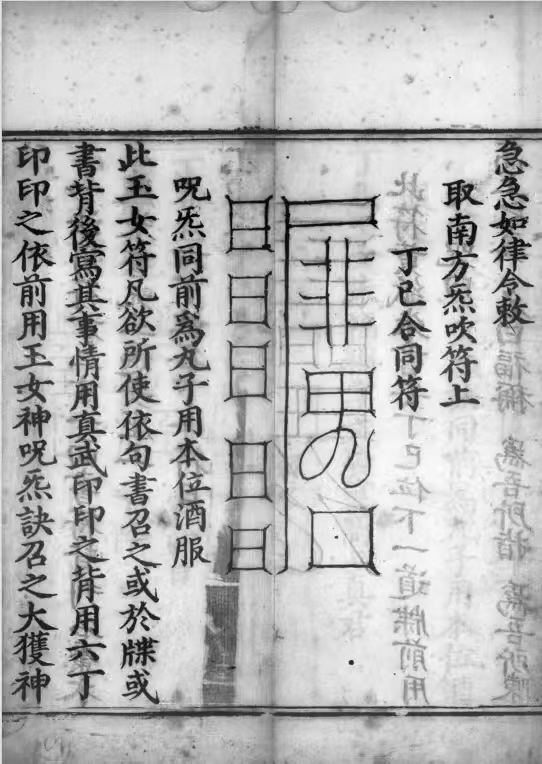 急急如律令敕
取南方炁吹符上
丁巳合同符
呪炁同前為丸子用本位酒服
此玉女符凡欲所使依句書召之或於牒或
書背後寫其事情用真武印印之背用六丁
印印之依前用玉女神呪炁訣召之大獲神